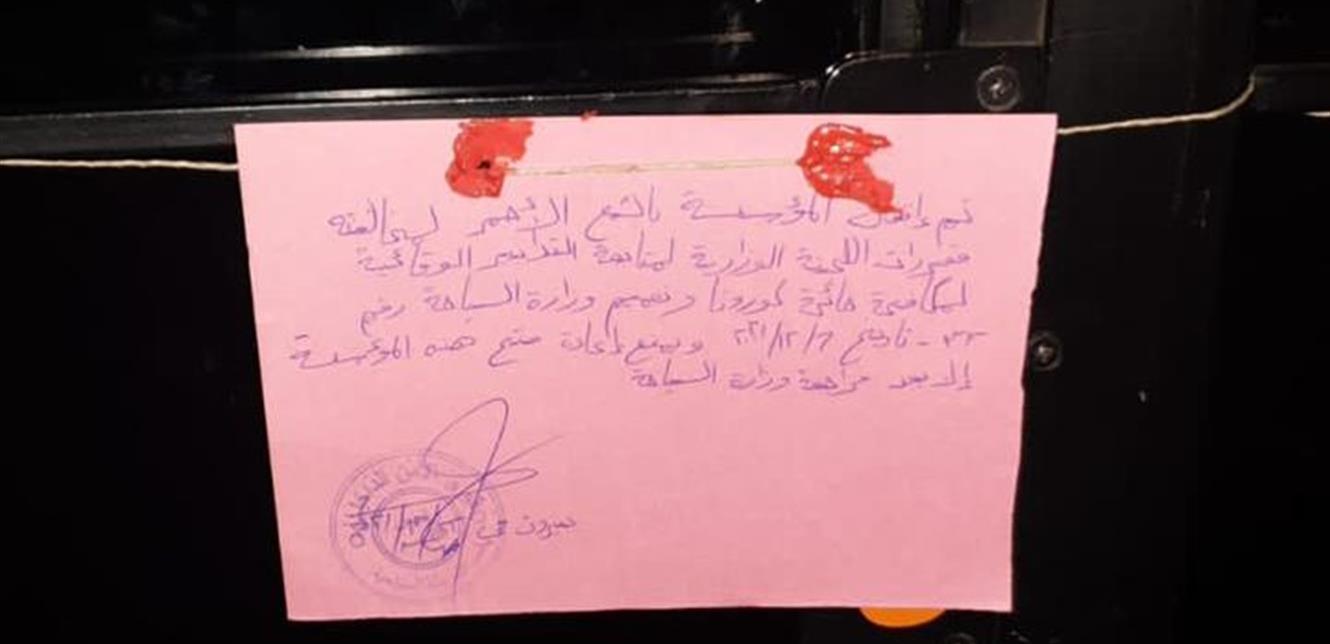 تم إقفال المؤسسة بالشمع الأحمر لمخالفته
مقررات اللجنة الوزارية لمتابعة التدابير الوقائية
لمكافحة جائحة كورونا وتعميم وزارة السياحة رقم
٢٣ - تاريخ ٢٠٢١/١٢/٦ ويمنع إعادة فتح هذه المؤسسة
إلا بعد مراجعة وزارة السياحة
بيروت في